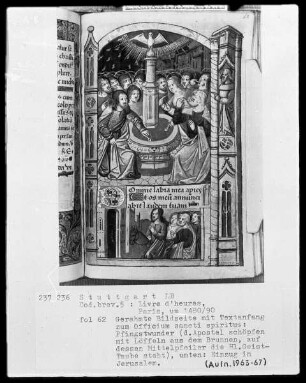 Domine labia mea aperi
et os meum annunci
abit laudem tuam
237 036 Stuttgart LB
Cod.brev.5 : Livre d'heures,
Paris, um 1480/90
fol 62 Gerahmte Bildseite mit Textanfang
zum Officium sancti spiritus:
Pfingstwunder (d.Apostel schöpfen
mit Löffeln aus dem Brunnen, auf
dessen Mittelpfeiler die Hl.Geist-
Taube steht), unten: Einzug in
Jerusalem.
(Aufn.1965-67)